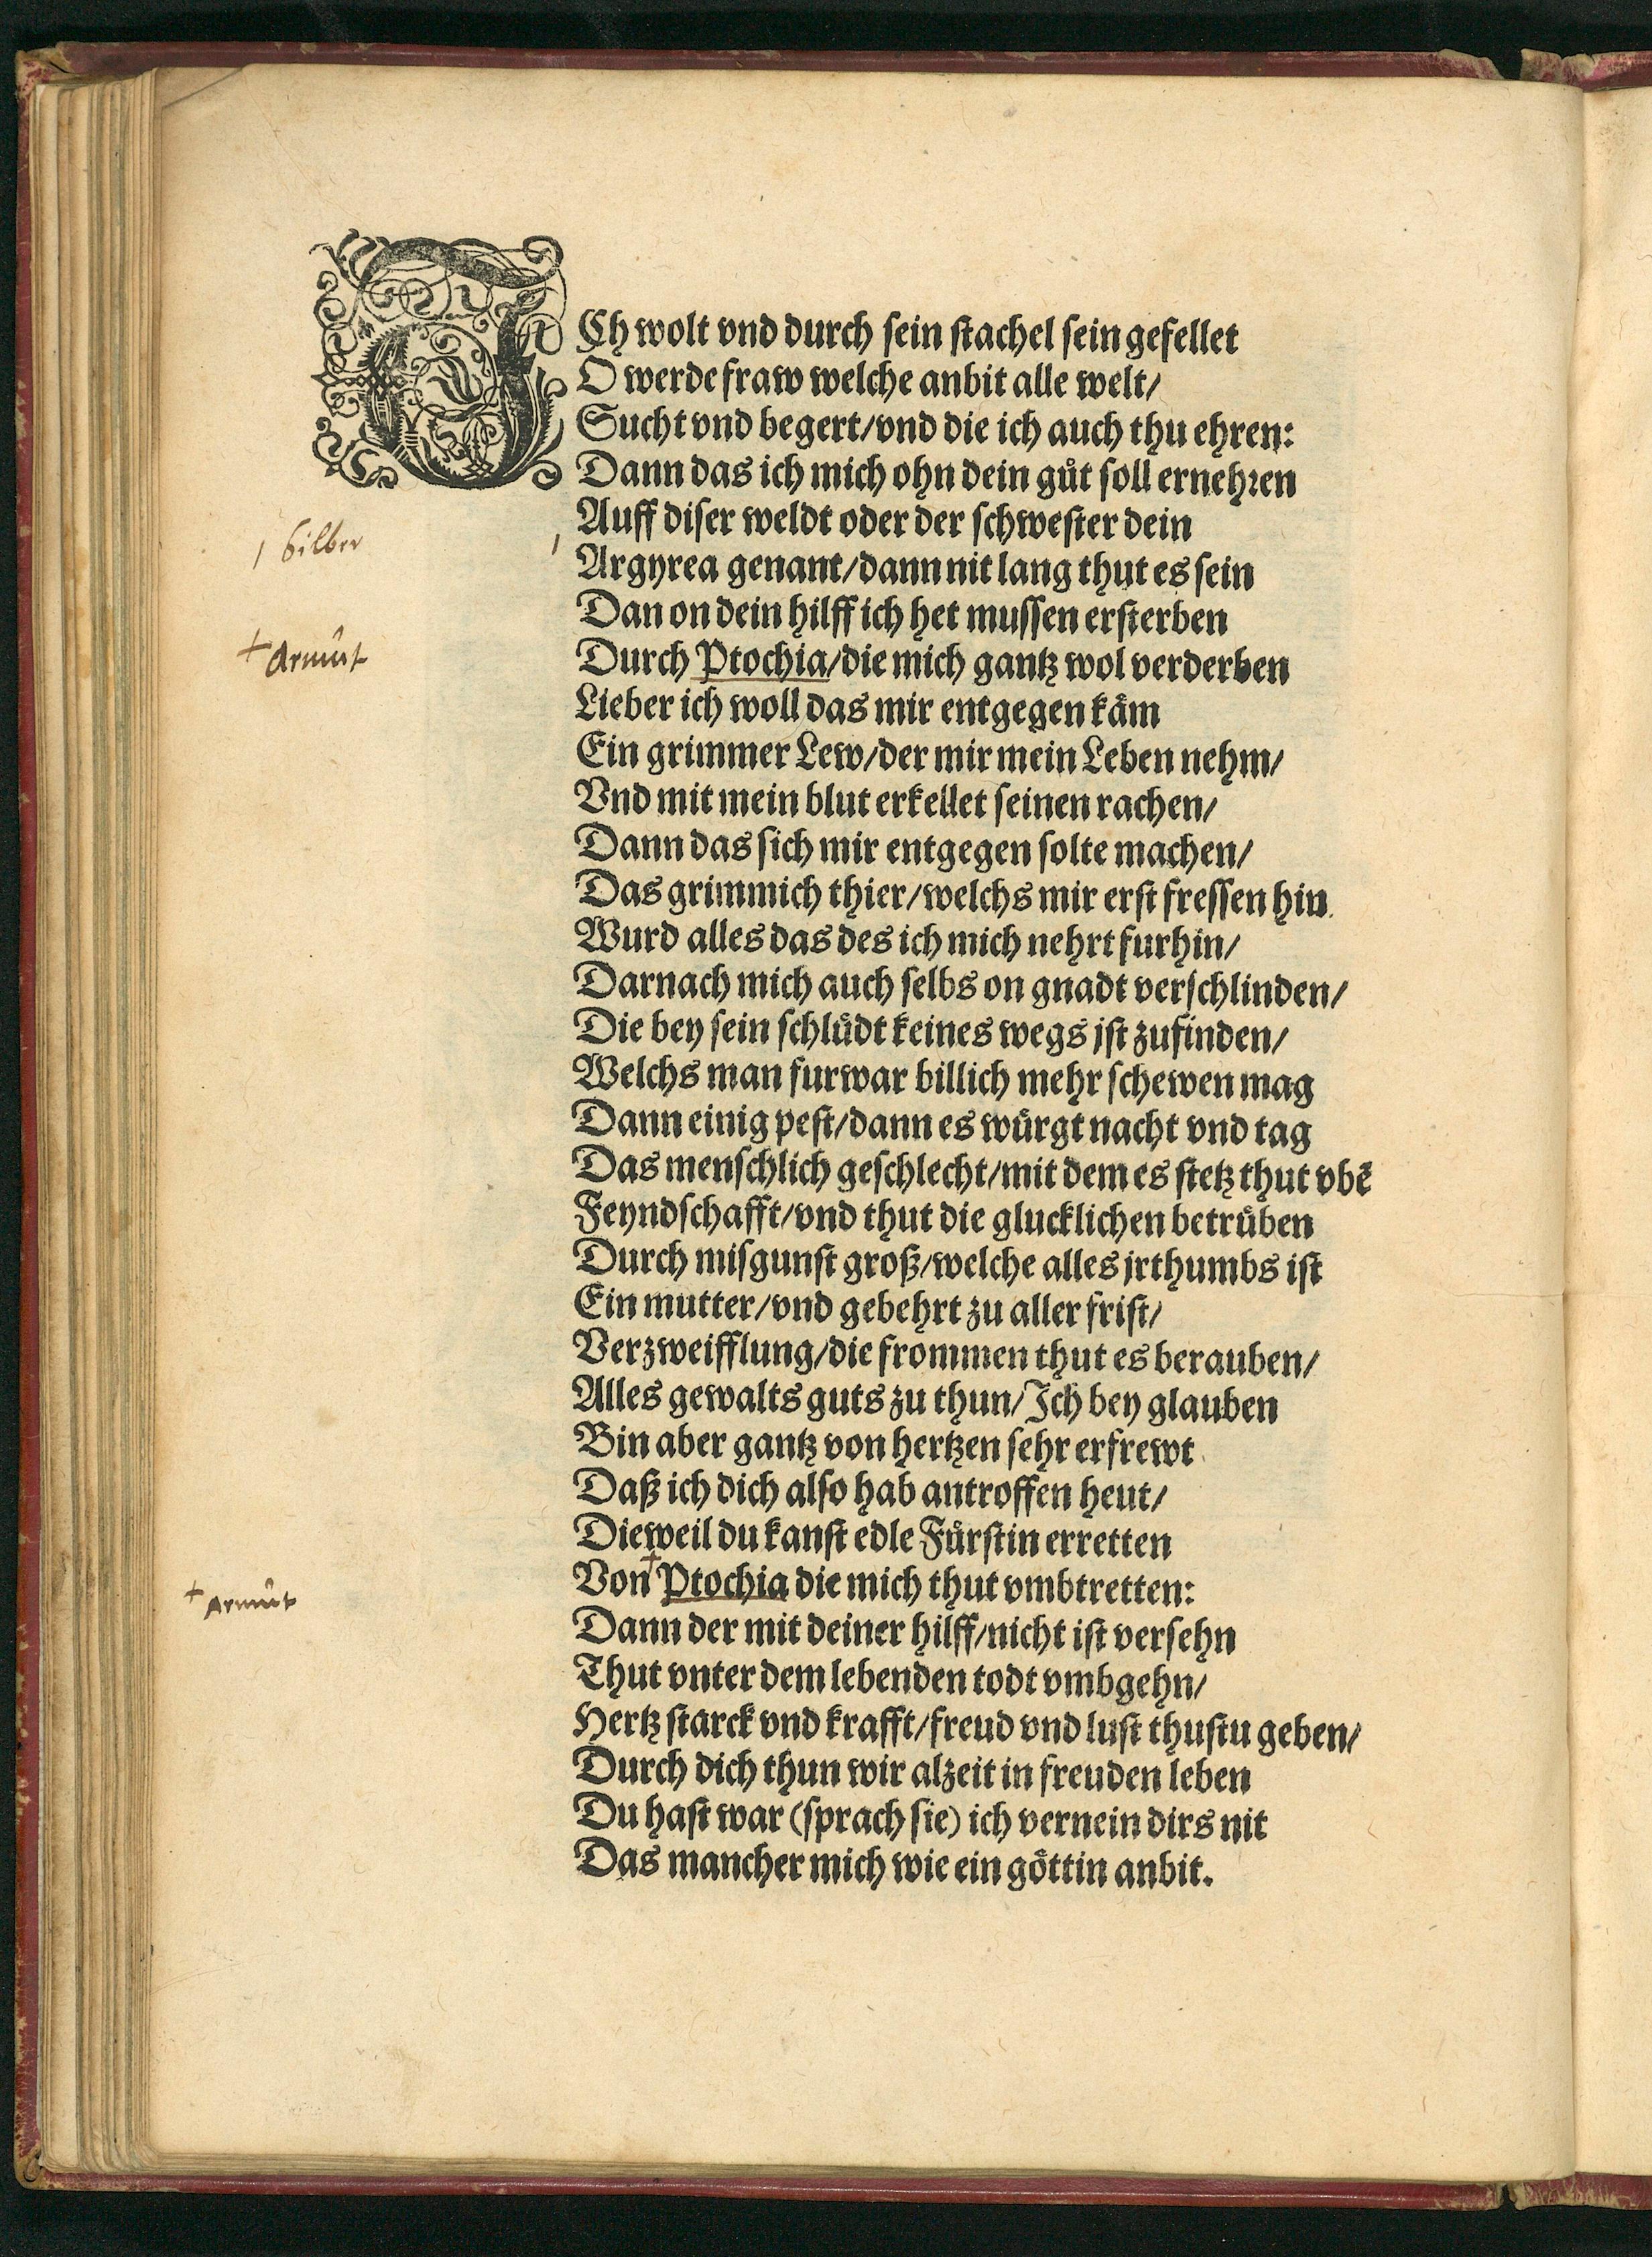 ICh wolt vnd durch sein stachel sein gefellet
O werde fraw welche anbit alle welt/
Sucht vnd begert/vnd die ich auch thu ehren:
Dann das ich mich ohn dein guͤt soll ernehren
Auff diser weldt oder der schwester dein
/ Silber
Argyrea genant/dann nit lang thut es sein
Dan on dein hilff ich het mussen ersterben
+ Armut
Durch Ptochia/die mich gantz wol verderben
Lieber ich woll das mir entgegen kaͤm
Ein grimmer Lew/der mir mein Leben nehm/
Vnd mit mein blut erkellet seinen rachen/
Dann das sich mir entgegen solte machen/
Das grimmich thier/welchs mir erst fressen hin
Wurd alles das des ich mich nehrt furhin/
Darnach mich auch selbs on gnadt verschlinden/
Die bey sein schluͤdt keines wegs jst zufinden/
Welchs man furwar billich mehr schewen mag
Dann einig pest/dann es wuͤrgt nacht vnd tag
Das menschlich geschlecht/mit dem es stetz thut vbē
Feyndschafft/vnd thut die glucklichen betruͤben
Durch misgunst groß/welche alles jrthumbs ist
Ein mutter/vnd gebehrt zu aller frist/
Verzweifflung/die frommen thut es berauben/
Alles gewalts guts zu thun/Ich bey glauben
Bin aber gantz von hertzen sehr erfrewt
Daß ich dich also hab antroffen heut/
Dieweil du kanst edle Fuͤrstin erretten
+ Armut
Von + Ptochia die mich thut vmbtretten:
Dann der mit deiner hilff/nicht ist versehn
Thut vnter dem lebenden todt vmbgehn/
Hertz starck vnd krafft/freud vnd lust thustu geben/
Durch dich thun wir alzeit in freuden leben
Du hast war (sprach sie) ich vernein dirs nit
Das mancher mich wie ein goͤttin anbit.